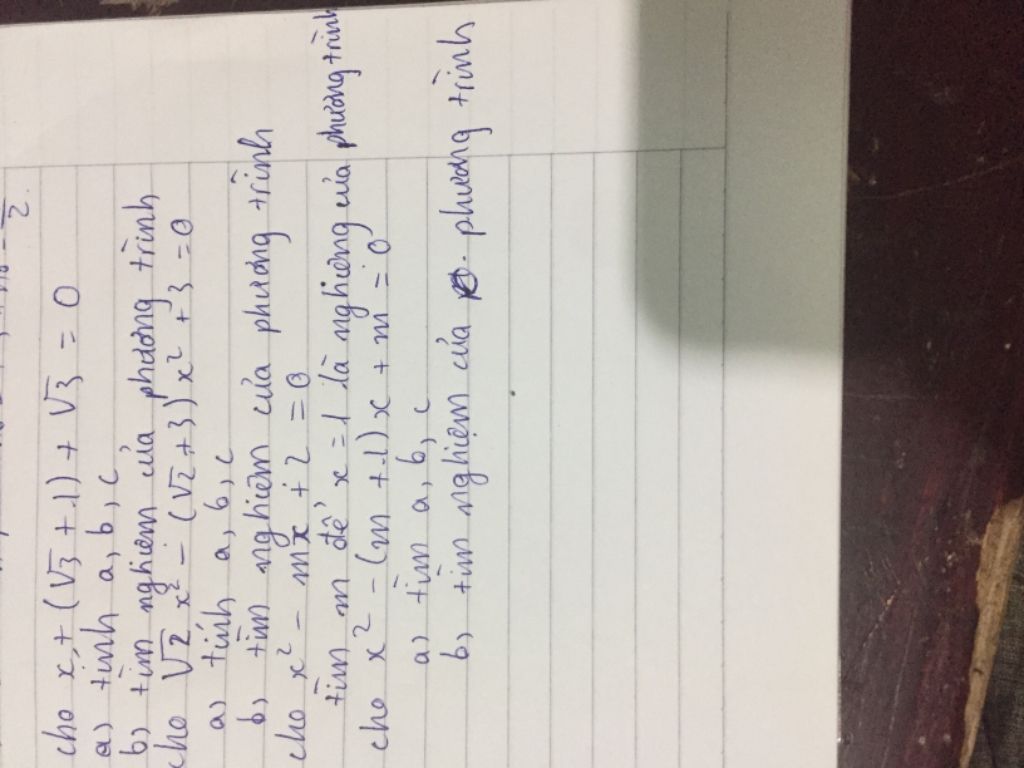 cho x + (√3 + 1) + √3 = 0
a) tính a, b, c
b) tìm nghiệm của phương trình
cho √2 x² - (√2 + 3) x² + 3 = 0
a) tính a, b, c
b) tìm nghiệm của phương trình
cho x² - mx + 2 = 0
tìm m để x = 1 là nghiệng của phương trình
cho x² - (m + 1) x + m = 0
a) tìm a, b, c
b, tìm nghiệm của phương trình